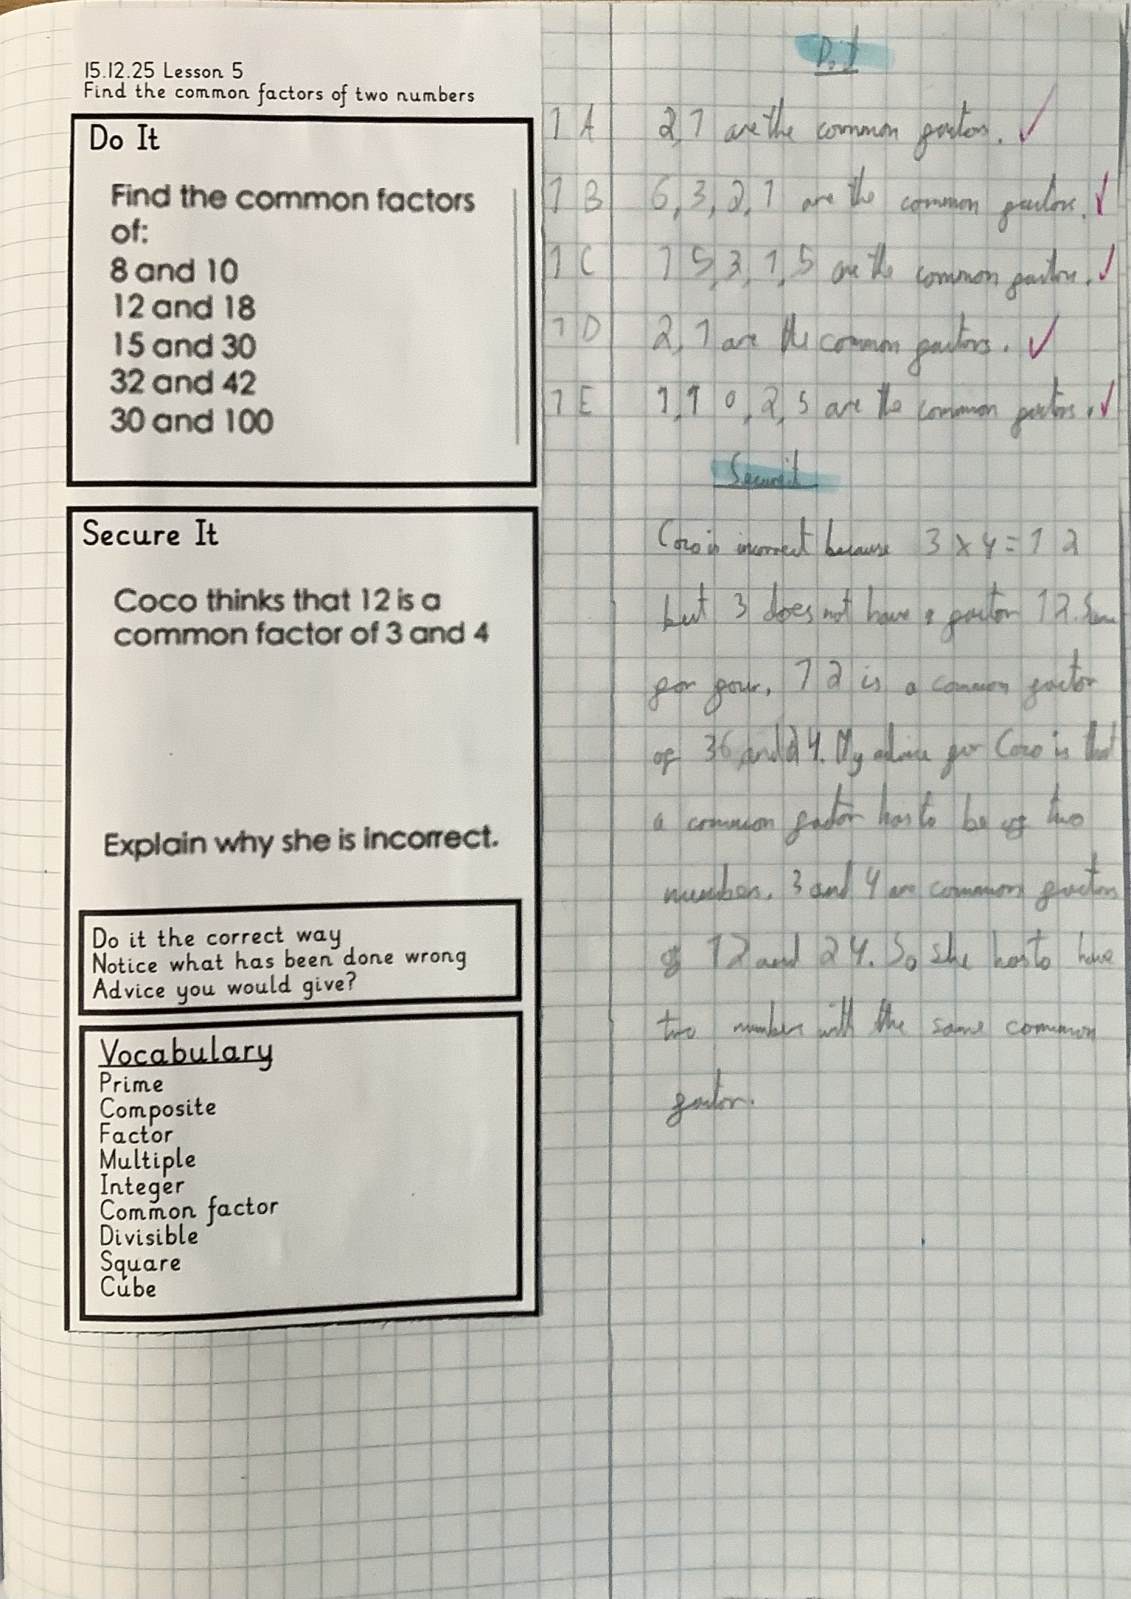 15.12.25 Lesson 5
Find the common factors of two numbers
Do It
Find the common factors
of:
8 and 10
12 and 18
15 and 30
32 and 42
30 and 100
Secure It
Coco thinks that 12 is a
common factor of 3 and 4
Explain why she is incorrect.
Do it the correct way
Notice what has been done wrong
Advice you would give?
Vocabulary
Prime
Composite
Factor
Multiple
Integer
Common factor
Divisible
Square
Cube
Do it
1 A 2, 1 are the common factors. ✓
1 B 6, 3, 2, 1 are the common factors. ✓
1 C 15, 3, 1, 5 are the common factors. ✓
1 D 2, 1 are the common factors. ✓
1 E 1, 10, 2, 5 are the common factors. ✓
Secure it
Coco is incorrect because 3 x 4 = 12
but 3 does not have a factor 12. Same
for four, 12 is a common factor
of 36 and 24. My advice for Coco is that
a common factor has to be of two
numbers. 3 and 4 are common factors
of 12 and 24. So she has to have
two numbers with the same common
factor.